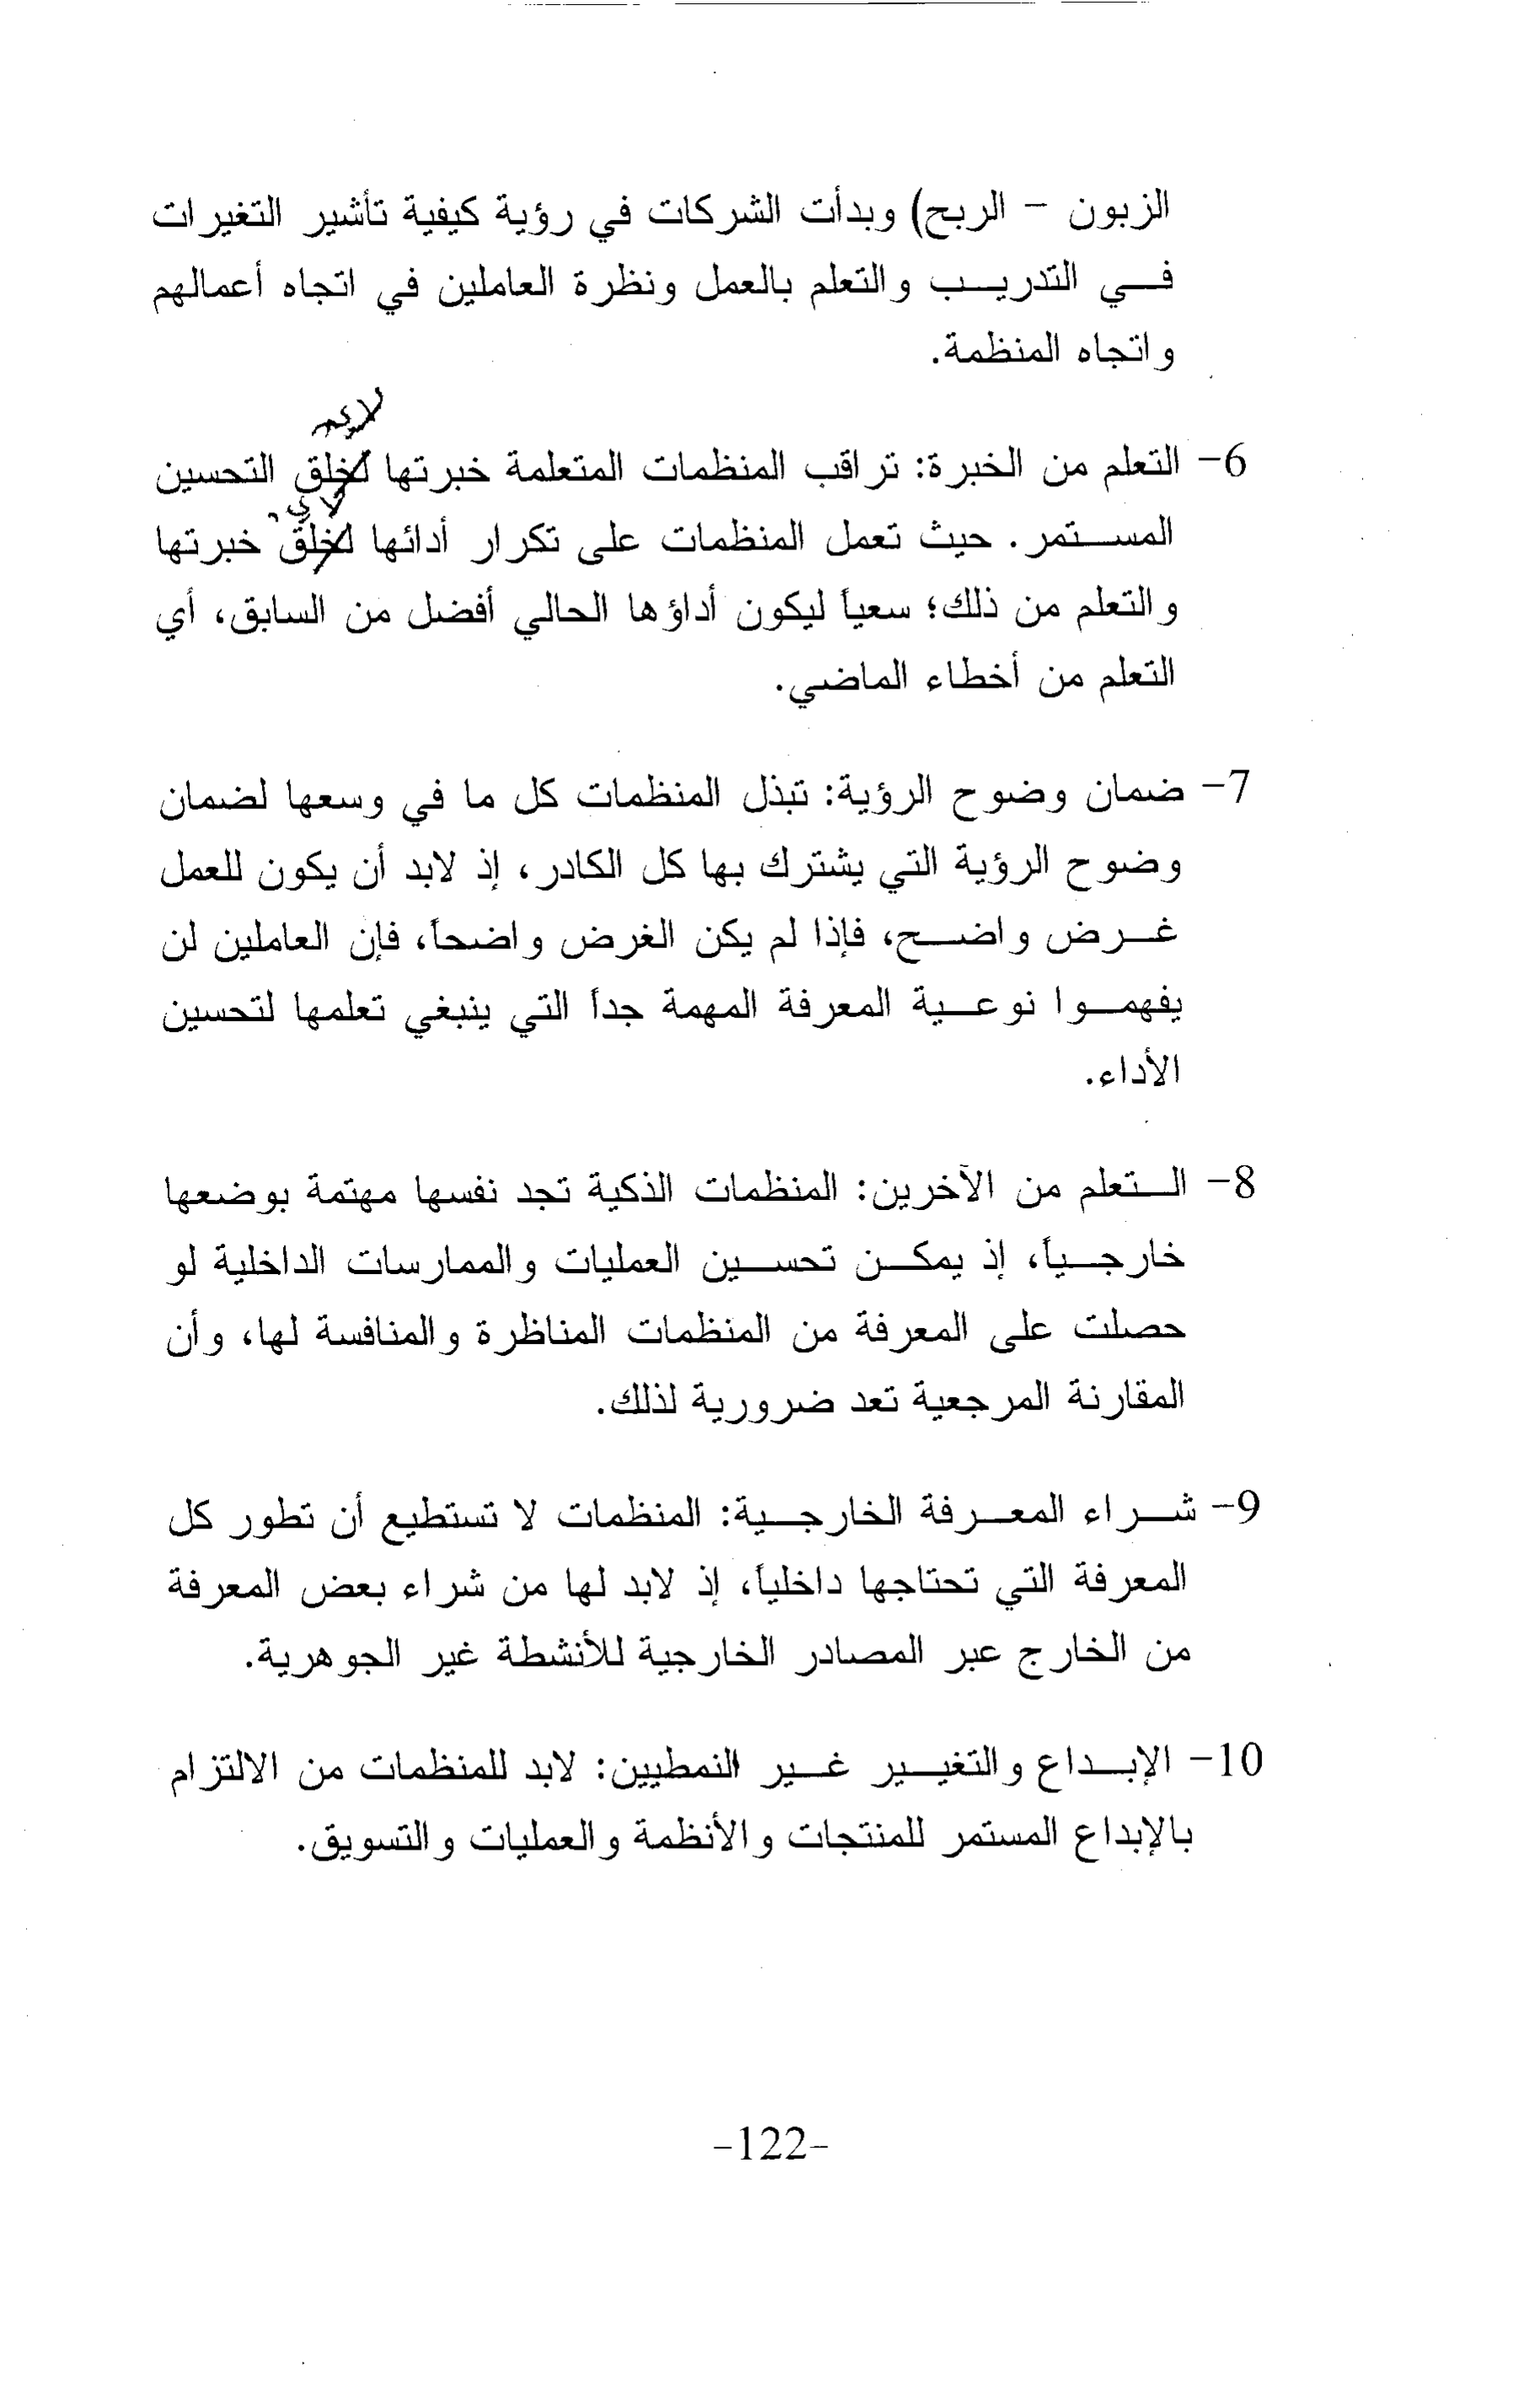 الزبون - الربح) وبدأت الشركات في رؤية كيفية تأشير التغيرات
في التدريب والتعلم بالعمل ونظرة العاملين في اتجاه أعمالهم
واتجاه المنظمة.
6- التعلم من الخبرة: تراقب المنظمات المتعلمة خبرتها لخلق التحسين
المستمر. حيث تعمل المنظمات على تكرار أدائها لخلق خبرتها
والتعلم من ذلك؛ سعياً ليكون أداؤها الحالي أفضل من السابق، أي
التعلم من أخطاء الماضي.
7- ضمان وضوح الرؤية: تبذل المنظمات كل ما في وسعها لضمان
وضوح الرؤية التي يشترك بها كل الكادر، إذ لابد أن يكون للعمل
غرض واضح، فإذا لم يكن الغرض واضحاً، فإن العاملين لن
يفهموا نوعية المعرفة المهمة جداً التي ينبغي تعلمها لتحسين
الأداء.
8- التعلم من الآخرين: المنظمات الذكية تجد نفسها مهتمة بوضعها
خارجياً، إذ يمكن تحسين العمليات والممارسات الداخلية لو
حصلت على المعرفة من المنظمات المناظرة والمنافسة لها، وأن
المقارنة المرجعية تعد ضرورية لذلك.
9- شراء المعرفة الخارجية: المنظمات لا تستطيع أن تطور كل
المعرفة التي تحتاجها داخلياً، إذ لابد لها من شراء بعض المعرفة
من الخارج عبر المصادر الخارجية للأنشطة غير الجوهرية.
10- الإبداع والتغيير غير النمطيين: لابد للمنظمات من الالتزام
بالإبداع المستمر للمنتجات والأنظمة والعمليات والتسويق.
-122-